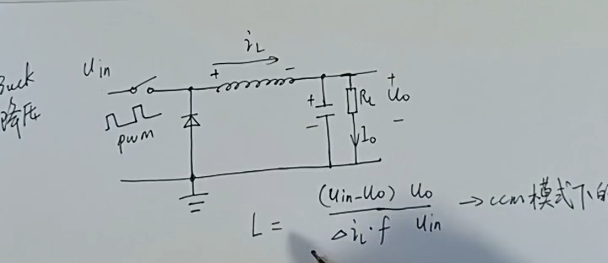 iL
Buck
降压
Uin
+ -
pwm
+ -
RL
Io
+
Uo
-
L = (Uin-Uo) Uo / ΔiL·f Uin → ccm模式下的